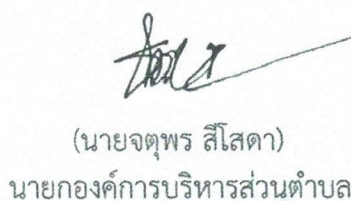 (นายจตุพร สีโสดา)
นายกองค์การบริหารส่วนตำบล